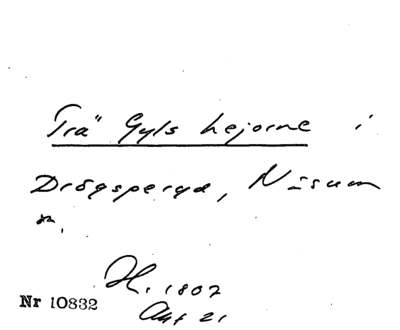 "Trä" Gyls hejorne i
Drögsperyd, Näsum
sn.
H. 1807
Akt 21
Nr 10832